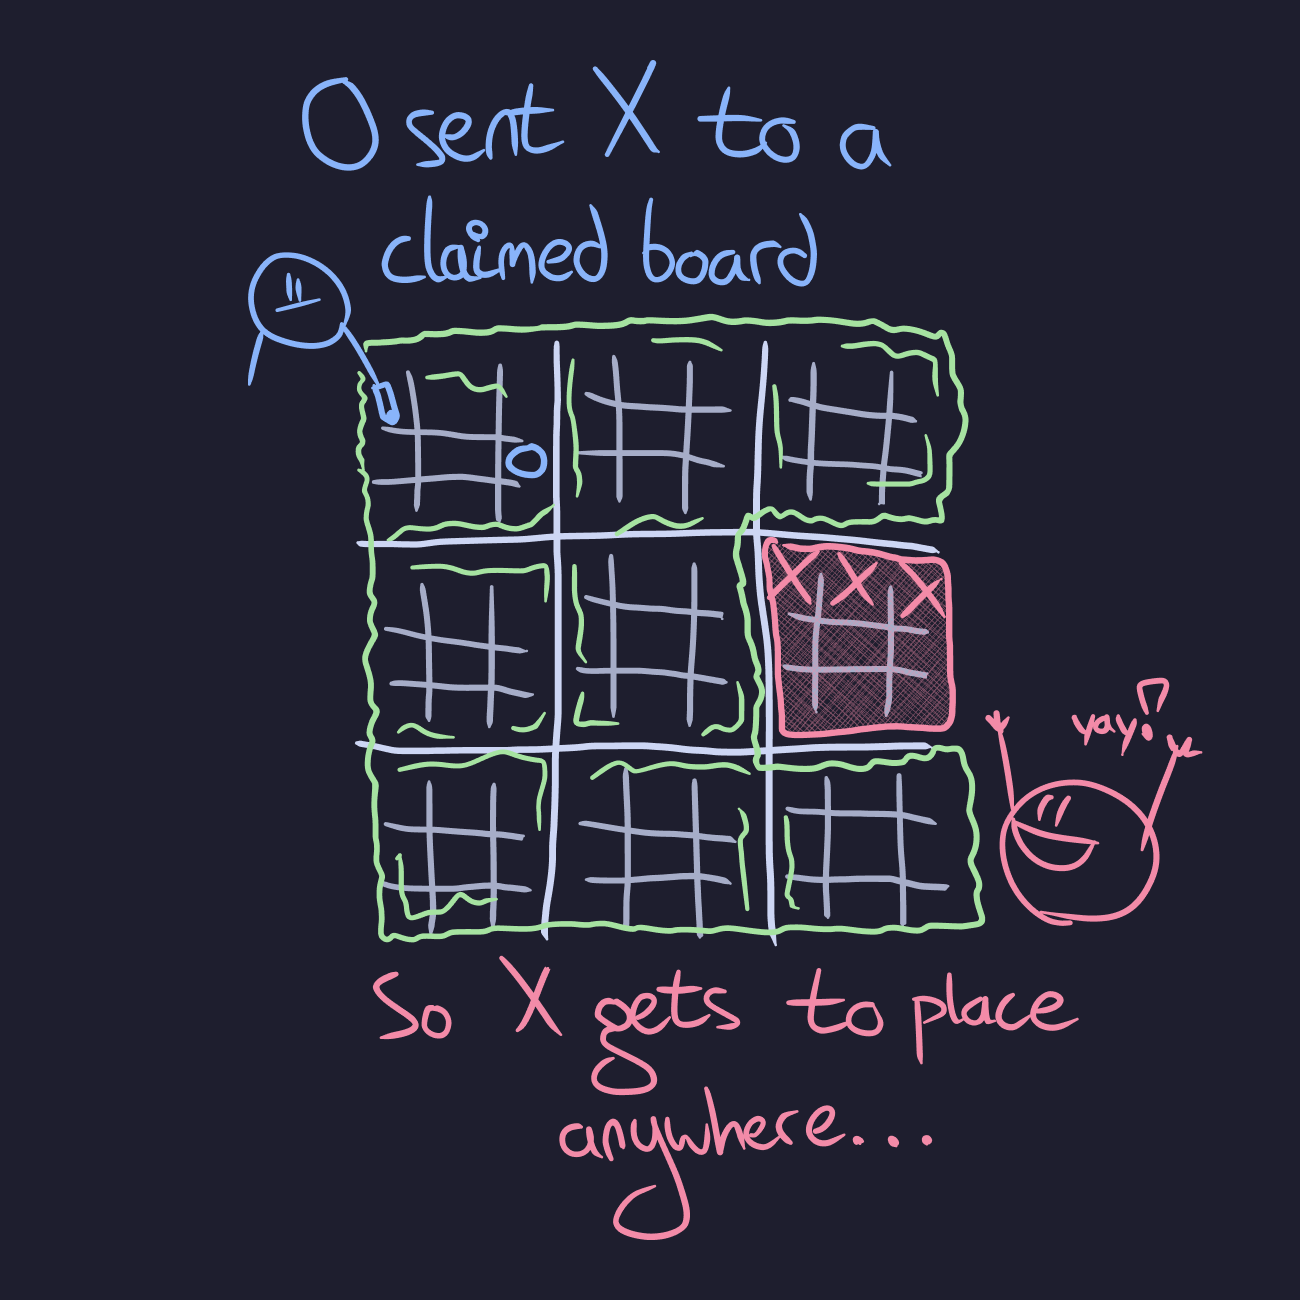 O sent X to a
claimed board
O
X X X
yay!
So X gets to place
anywhere...